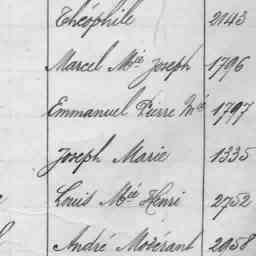 Théophile 2143
Marcel Mie Joseph 1796
Emmanuel Pierre Mie 1797
Joseph Marie 1335
Louis Mie Henri 2752
André Mozérant 2958